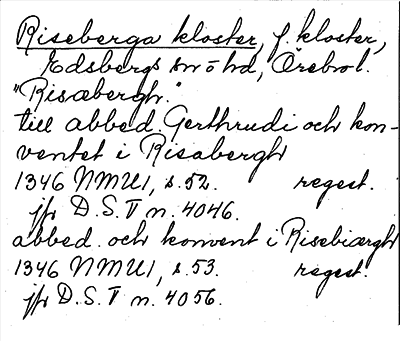 Riseberga kloster, f. kloster,
Edsbergs sn o hd, Örebro l.
"Risæbergh."
till abbed. Gerthrudi och kon-
ventet i Risabergh
1346 NMU1, s. 52. regest.
jfr D.S. V n. 4046.
abbed. och konvent i Risebiærgh
1346 NMU1, s. 53. regest.
jfr D.S. V n. 4056.